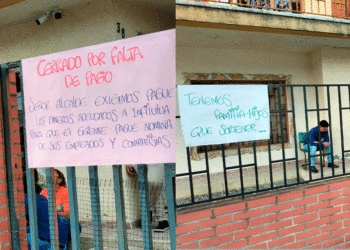 CERRADO POR FALTA
DE PAGO
SEÑOR ALCALDE EXIGIMOS PAGUE
LOS DINEROS ADEUDADOS A
PARA QUE EL GERENTE PAGUE NOMINA
DE SUS EMPLEADOS Y CONTRATISTAS
TENEMOS
FAMILIA-HIJOS
QUE SOSTENER...